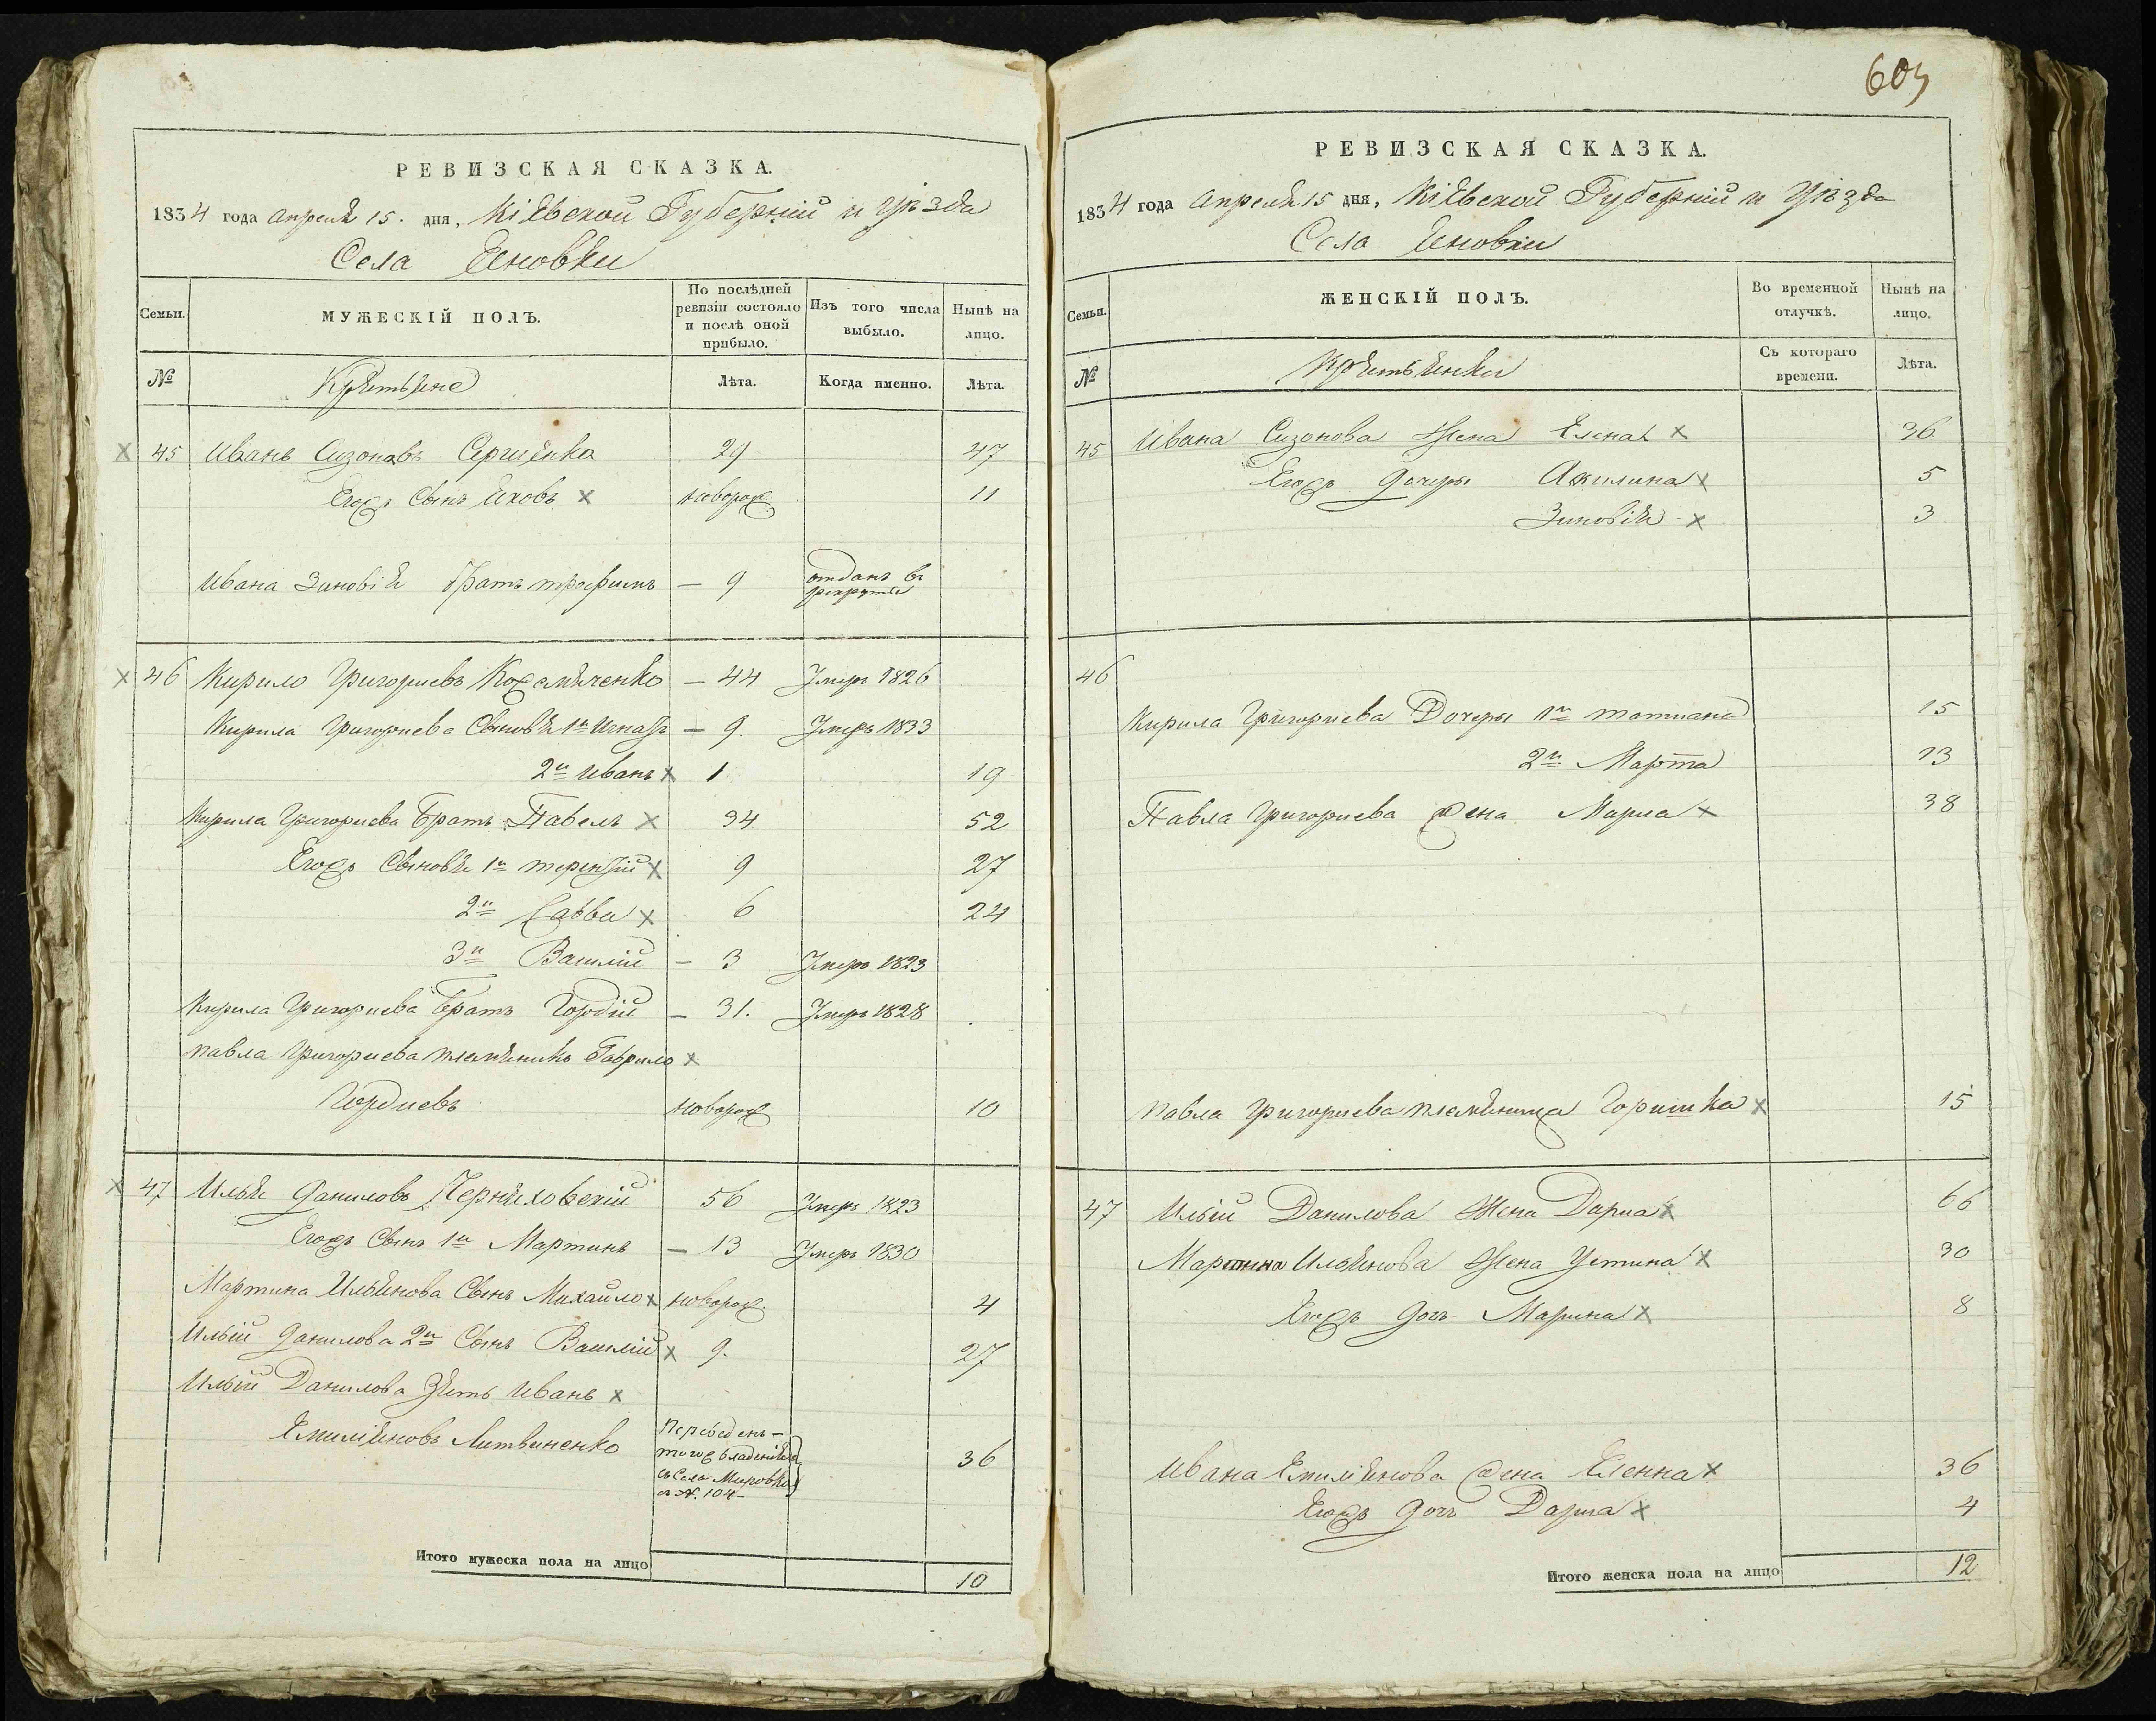 603
РЕВИЗСКАЯ СКАЗКА.
1834 года Апреля 15. дня, Кіевской Губерніи и Уѣзда
Села Яновки
Семьи.
МУЖЕСКІЙ ПОЛЪ.
По послѣдней ревизіи состояло и послѣ оной прибыло.
Изъ того числа выбыло.
Нынѣ на лицо.
№
Крестьяне
Лѣта.
Когда именно.
Лѣта.
45 Иванъ Сизоновъ Сергіенко 29 47
Егожъ Сынъ Яковъ новорож 11
Ивана Зиновія братъ трофимъ — 9 отданъ въ рекруты
46 Кирило Григориевъ — 44 Умеръ 1826
Кирила Григориева Сыновья 1й Игнатъ — 9. Умеръ 1833
2й Иванъ 1 19
Кирила Григориева Братъ Павелъ 34 52
Егожъ Сыновья 1й терентій 9 27
2й Савва 6 24
3й Василій — 3 Умеръ 1823
Кирила Григориева Братъ Гордій — 31. Умеръ 1828
павла Григориева племяникъ Гаврило
Гордиевъ новорож 10
47 Илья Даниловъ Черняховскій 56 Умеръ 1823
Егожъ Сынъ 1й Мартинъ — 13 Умеръ 1830
Мартина Ильянова Сынъ Михайло новорож. 4
Ильи Данилова 2й Сынъ Василій 9. 27
Ильи Данилова Зять Иванъ
Емиліяновъ Литвиненко 36
Переведенъ —
тогожъ владенія
съ Села Мировки
съ №. 104 —
Итого мужеска пола на лицо 10
РЕВИЗСКАЯ СКАЗКА.
1834 года Апреля 15 дня, Кіевской Губерніи и Уѣзда
Села Яновки
Семьи.
ЖЕНСКІЙ ПОЛЪ.
Во временной отлучкѣ.
Нынѣ на лицо.
№
Крестьянки
Съ котораго времени.
Лѣта.
45 Ивана Сизонова Жена Елена 36
Егожъ дочеры Акилина 5
Зиновія 3
46
Кирила Григориева Дочеры 1я татиана 15
2я Марта 13
Павла Григориева жена Мариа 38
павла Григориева племяница Горпишка 15
47 Ильи Данилова Жена Дариа 66
Мартина Ильянова Жена Устина 30
Егожъ дочь Марина 8
Ивана Емиліянова жена Еленна 36
Егожъ дочь Дариа 4
Итого женска пола на лицо 12